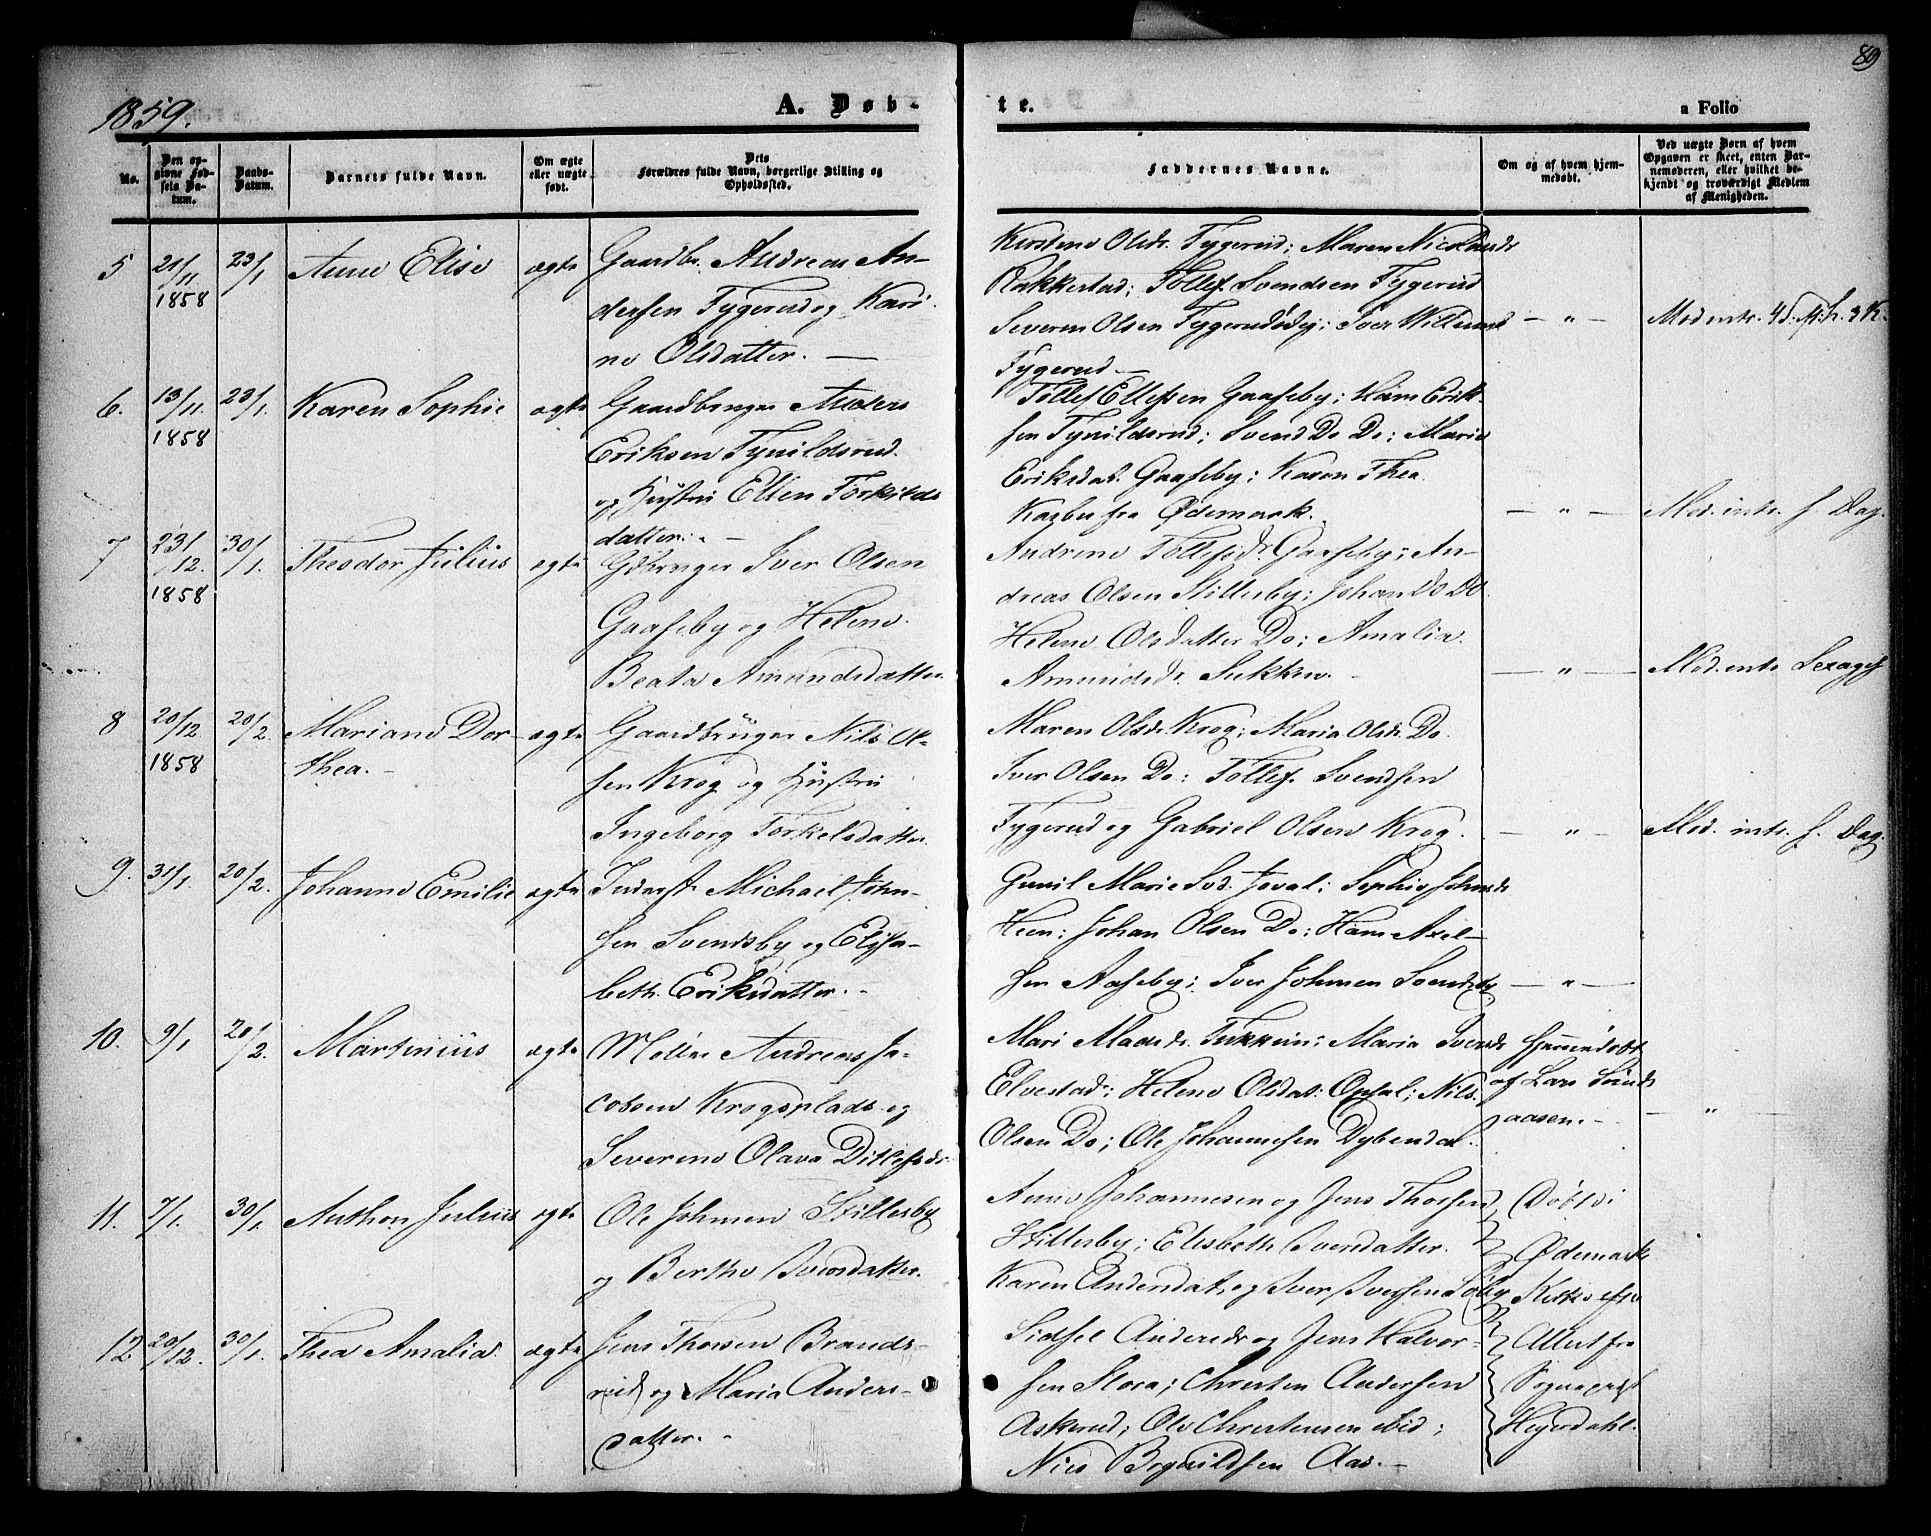 89
1859.
A. Døb-
te.
a Folio
No.
Den op-
givne Fød-
sels Da-
tum.
Daabs-
Datum.
Barnets fulde Navn.
Om ægte
eller uægte
født.
Dets
Forældres fulde Navn, borgerlige Stilling og
Opholdssted.
Faddernes Navne.
Om og af hvem hjem-
medøbt.
Ved uægte Børn af hvem
Opgaven er skeet, enten Bar-
nemoderen, eller hvilket be-
kjendt og troværdigt Medlem
af Menigheden.
5
21/11
1858
23/1
Anne Elise
ægte
Gaardbr. Andreas An-
dersen Tygerud og Kari-
ne Olsdatter. —
Kirstine Olsdr. Tygerud; Maren Nicolaidr
Rakkestad; Tollef Svendsen Tygerud
Severin Olsen Tygerudødeg; Iver Willumsd
Tygerud —
— " —
Mod. intr. 4 S.
6.
13/11.
1858
23/1.
Karen Sophie
ægte
Gaardbruger Anders
Eriksen Tynildsrud.
og Hustru Ellen Torkilds
datter. —
Tollef Ellefsen Gaaseby; Hans Erik-
sen Tynildsrud; Svend Do Do; Maria
Eriksdat. Gaaseby; Karen Thea
fra Ødemark.
— " —
Mod. intr. s. Dag.
7
23/12.
1858
30/1.
Theodor Julius
ægte
Gdbruger Iver Olsen
Gaaseby og Helene
Beata Amundsdatter.
Andrine Tollefsdr Gaaseby; An-
dreas Olsen Stillesby; Johan Do Do
Helene Olsdatter Do; Amalia
Amundsdr. Sukken. —
— " —
Mod. intr. Sexages
8
20/12
1858
20/2.
Mariane Dor-
thea. —
ægte
Gaardbruger Nils Ol-
sen Krog og Hustru
Ingeborg Torkelsdatter.
Maren Olsdr. Krog; Maria Olsdr. Do.
Iver Olsen Do; Tollef. Svendsen
Tygerud og Gabriel Olsen Krog.
— " —
Mod. intr. s. Dag
9.
31/1.
20/2.
Johanne Emilie
ægte
Inderst. Michael John-
sen Svendsby og Elisa-
beth. Eriksdatter. —
Gunil Marie Sød. Joval; Sophie Johnsdr
Heen; Johan Olsen Do; Hans Axel-
sen Aaseby; Iver Johnsen Svendsby
— " —
10.
9/1
20/2.
Martinius
ægte
Møller Andreas Ja-
cobsen Krogsplads og
Severine Olava Ditlefsdr.
Mari Madsdr. Tukkun; Maria Svendsdr
Elvestad; Helene Olsdat: Opsal; Nils
Olsen Do; Ole Johannesen Dybendal.
Hjemmedøbt
af Lars Sunds
aasen. —
— " —
11.
7/1.
30/1
Anthon Julius
ægte
Ole Johnsen Stillesby
og Berthe Iversdatter.
Anne Johannesen og Jens Thorsen
Stillesby; Elisbeth Iversdatter.
Karen Andersdat. og Iver Iversen Søby
Døbt i
Ødemark
Kirke efter
12
20/12.
30/1.
Thea Amalia.
ægte
Jens Thorsen Brands-
rud og Maria Anders-
datter. —
Sidsel Andersdr og Jens Halvor-
sen Slora; Christen Andersen
Askerud; Ole Christensen ibid;
Nies Bognildsen Aas. —
Attest fra
Sognepræst
Heyerdahl.